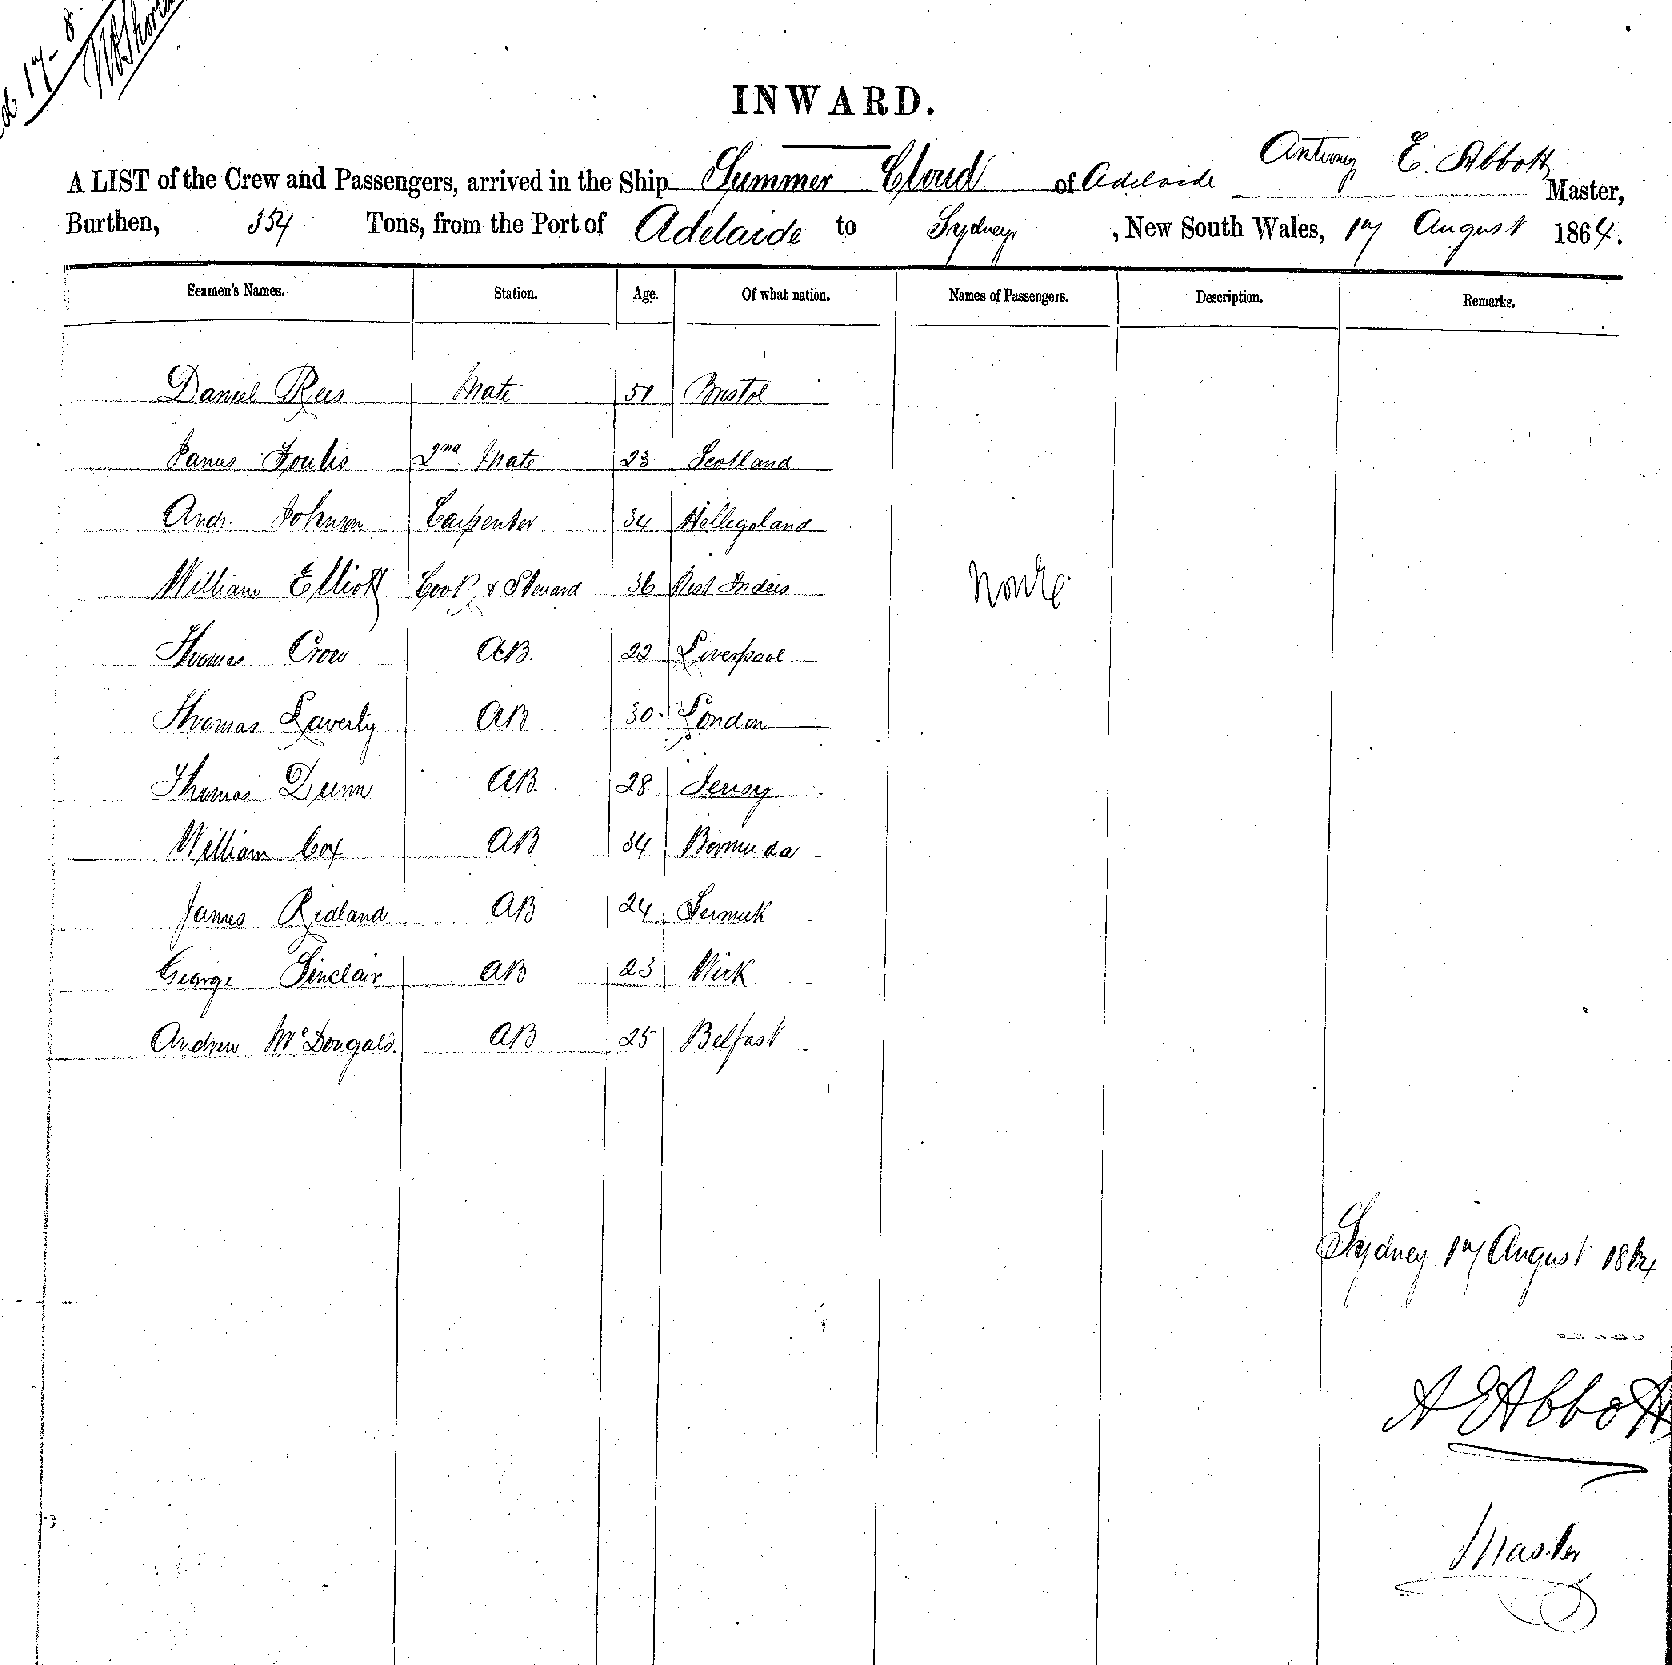 17-8
INWARD.
A LIST of the Crew and Passengers, arrived in the Ship Summer Cloud of Adelaide Antony E. Abbott Master,
Burthen, 354 Tons, from the Port of Adelaide to Sydney, New South Wales, 17 August 1864.
Seamen's Names. Station. Age. Of what nation. Names of Passengers. Description. Remarks.
Daniel Rees Mate 51 Bristol
James Foulis 2nd Mate 23 Scotland
Andr. Johnson Carpenter 34 Helligoland
William Elliott Cook & Steward 36 West Indies None
Thomas Crow AB. 22 Liverpool
Thomas Laverty AB 30 London
Thomas Dunn AB. 28 Jersey
William Cox AB 34 Bermuda
James Ridland AB 24
George Sinclair AB 23 Wick
Andrew McDougald. AB 25 Belfast
Sydney 17 August 1864
A E Abbott
Master